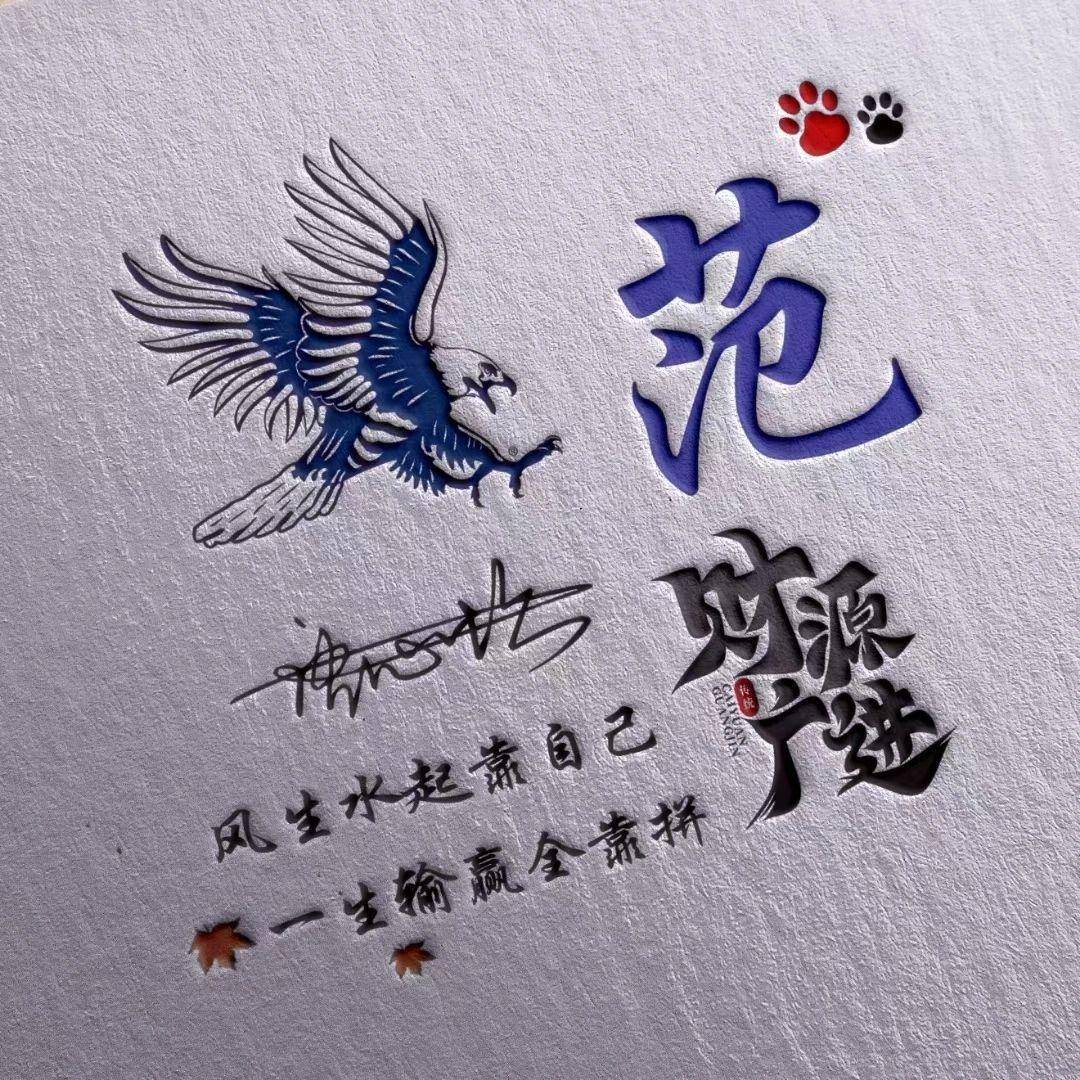 范
财源
广进
传统
CAIYUAN
GUANGJIN
风生水起靠自己
一生输赢全靠拼
®